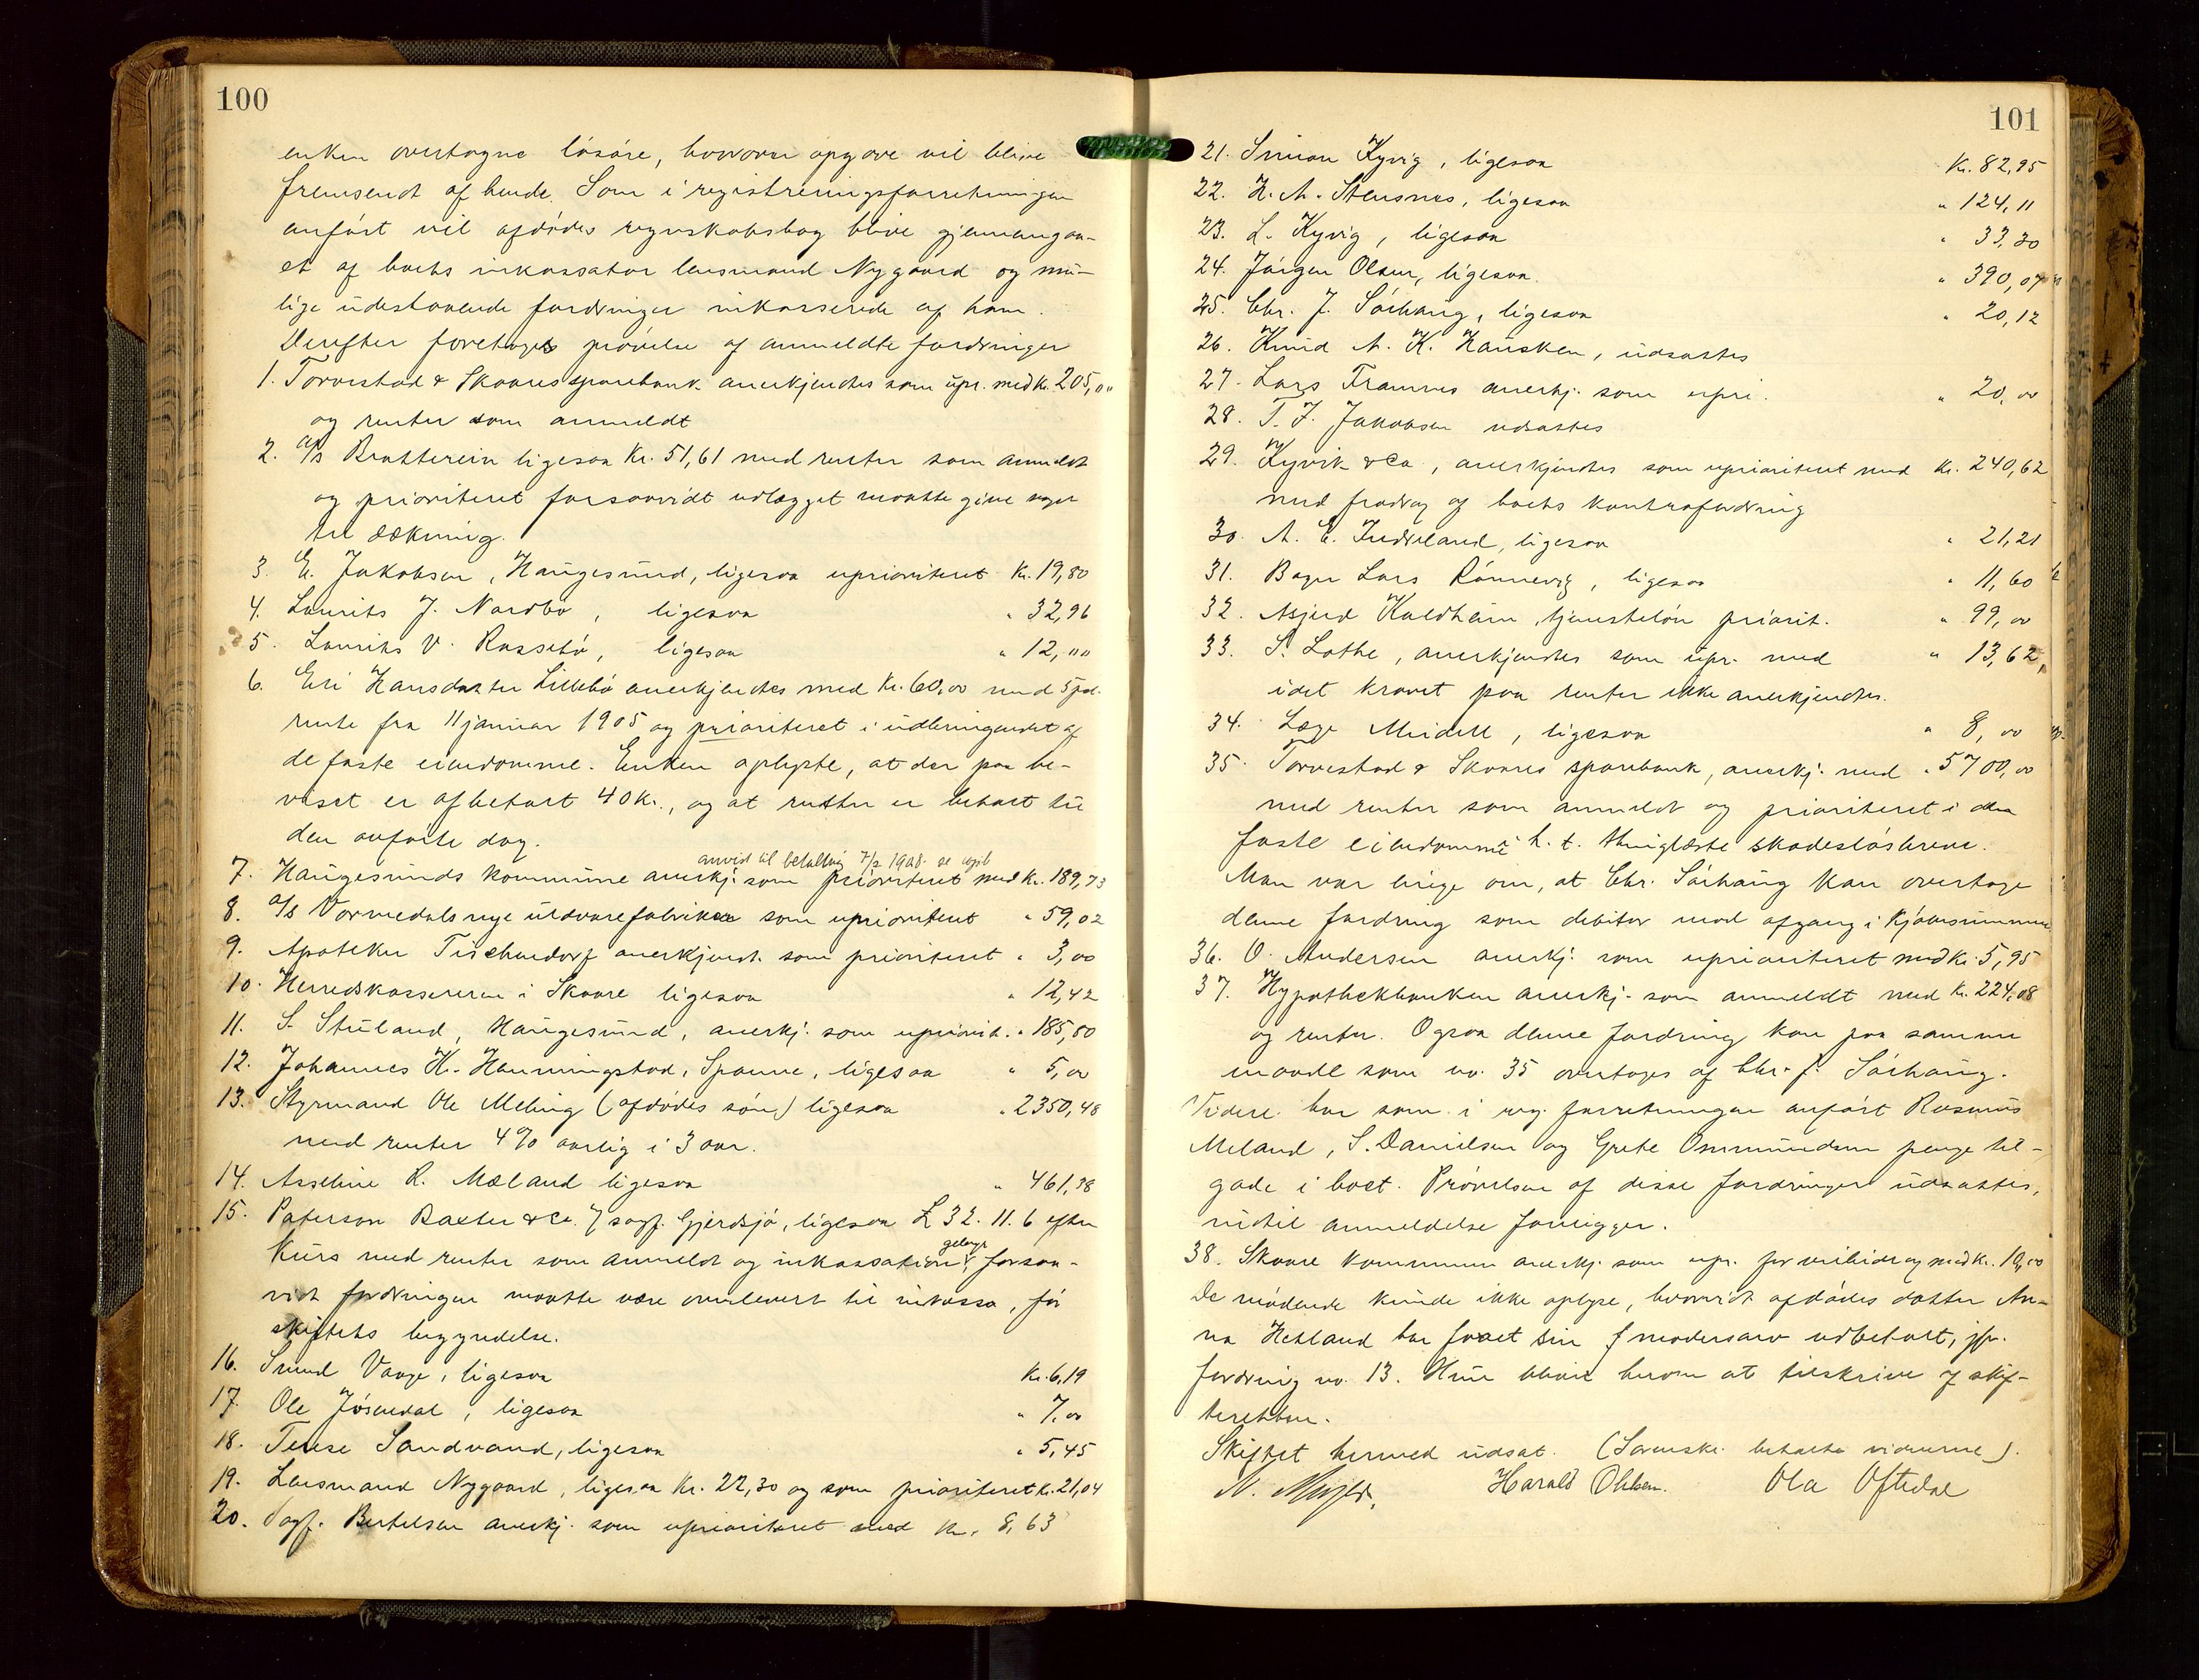 100
enken overtagne løsøre, hvorover opgave vil blive
fremsendt af hende. Som i registreringsforretningen
anført vil afdødes regnskabsbog blive gjennemgaa-
et af boets inkassator lensmand Nygaard og mu-
lige udestaaende fordringer inkasserede af ham.
Derefter foretoges prøvelse af anmeldte fordringer
1. Torvestad & Skaares sparebank anerkjendtes som upr. med Kr. 205,00
og renter som anmeldt
2. A/s Bratterein ligesaa Kr. 51,61 med renter som anmeldt
og prioriteret forsaavidt udlægget maatte give noget
til dækning.
3. E. Jakobsen, Haugesund, ligesaa uprioriteret Kr. 19,80
4. Laurits J. Nordbø, ligesaa " 32,96
5. Laurits V. Rossebø, ligesaa " 12,00
6. Eli Hansdatter Lillebø anerkjendtes med Kr. 60,00 med 5 pct.
rente fra 11 januar 1905 og prioriteret i udbringendet af
de faste eiendomme. Enken oplyste, at der paa be-
viset er afbetalt 40 Kr., og at renter er betalt til
den anførte dag.
anvist til betaling 7/2 1908 se
7. Haugesunds kommune anerkj. som prioriteret med Kr. 189,73
8. A/s Vormedals nye uldvarefabrikker som uprioriteret " 59,02
9. Apoteker Tischendorf anerkjendt. som prioriteret " 3,00
10. Herredskassereren i Skaare ligesaa " 12,42
11. S. Stuland, Haugesund, anerkj. som upriorit. " 185,80
12. Johannes K. Henningstad, Spanne, ligesaa " 5,00
13. Styrmand Ole Meling (afdødes søn) ligesaa " 2350,48
med renter 4% aarlig i 3 aar.
14. Asseline R. Mæland ligesaa " 461,98
15. Paterson Baxter & Co. / sagf. Gjerdsjø, ligesaa £ 32. 11. 6 efter
gebyr
Kurs med renter som anmeldt og inkassation, forsaa-
vidt fordringen maatte være overleveret til inkasso, før
skiftets begyndelse.
16. Svend Vaage, ligesaa Kr. 6,19
17. Ole Jøsendal, ligesaa " 7,00
18. Terese Sandvand, ligesaa " 5,45
19. Lensmand Nygaard, ligesaa Kr. 22,30 og som prioriteret Kr. 21,04
20. Sagf. Bertelsen anerkj. som uprioriteret med Kr. 8,63
101
21. Simon Kyvig, ligesaa Kr. 82,95
22. H. M. Stensnes, ligesaa " 124,11
23. L. Kyvig, ligesaa " 33,30
24. Jørgen Olsen, ligesaa. " 390,07
25. Chr. J. Sørhaug, ligesaa " 20,12
26. Knud A. K. Hausken, udsattes
27. Lars Framnes anerkj. som upri. " 20,00
28. T. J. Jakobsen udsattes
29. Kyvik & Co, anerkjendtes som uprioriteret med Kr. 240,62
med fradrag af boets kontrafordring
30. A. E. Indreland, ligesaa " 21,21
31. Bager Lars Rønnevig, ligesaa " 11,60
32. Asjerd Kaldheim, tjenesteløn priorit. " 99,00
33. S. Lothe, anerkjendtes som upr. med " 13,62,
idet kravet paa renter ikke anerkjendtes.
34. Læge Meidell, ligesaa " 8,00
35. Torvestad & Skaares sparebank, anerkj. med " 5700,00
med renter som anmeldt og prioriteret i den
faste eiendomme h. t. thinglæste skadesløsbreve.
Man var enige om, at Chr. Sørhaug kan overtage
denne fordring som debitor mod afgang i Kjøbesummen
36. O. Andersen anerkj. som uprioriteret med Kr. 5,95
37. Hypothekbanken anerkj. som anmeldt med Kr. 224,08
og renter. Ogsaa denne fordring kan paa samme
maade som no. 35 overtages af Chr. J. Sørhaug.
Videre har som i reg. forretningen anført Rasmus
Meland, S. Danielsen og Grete Ommundsen penge til-
gode i boet. Prøvelsen af disse fordringer udsattes,
indtil anmeldelse foreligger.
38. Skaare kommune anerkj. som upr. for veibidrag med Kr. 10,00
De mødende kunde ikke oplyse, hvorvidt afdødes datter An-
na Hetland har faaet sin f mødrearv udbetalt, jfr.
fordring no. 13. Hun bliver herom at tilskrive af skif-
teretten.
Skiftet hermed udsat. (Sorenskr. betalte vidnerne).
Harald Ohlsen. Ola Oftedal